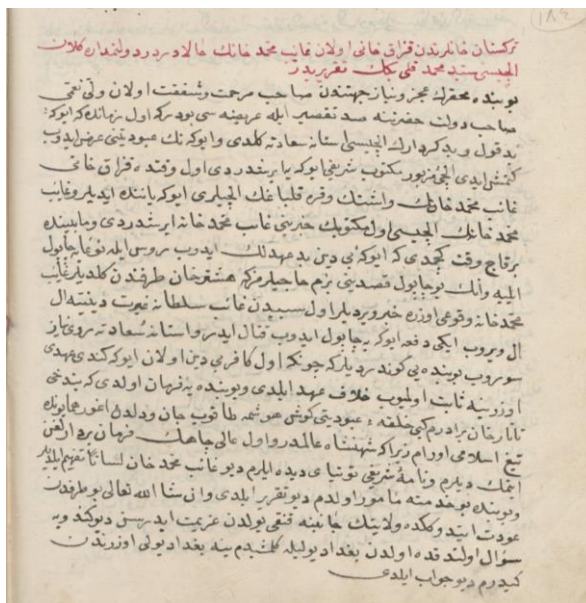 تركستان خانلرندن قزاق خانى اولان غايب محمد خانك حالا در دولتمداره كلان
ايلچيسى سيد محمد قلى بيك تقريريدر
بو بنده محقرك عجز و نياز جهتندن صاحب مرحمت و شفقت اولان ولى نعمى
صاحب دولت حضرتنه صد تقصير ايله عرضه سى بودركه اول زمانده كه ابوكه
نك قول و بد كردارك ايلچيسى استانه سعادته كلدى و ابوكه نك عبوديتنى عرض ايدوب
كتمش ايدى ايلچئ مزبور مكتوب شريفى ابوكه يه ايرشدردى اول وقتده قزاق خانى
غايب محمد خانك و اشتك و قره قلپاغك ايلچيلرى ابوكه ياننده ايديلر و غايب
محمد خانك ايلچيسى اول مكتوبك خبرينى غايب محمد خانه ايرشدردى و مابينده
برقاچ وقت كچدى كه ابوكه بى دين بد عهدلك ايدوب روس ايله نوغايه چاپول
ايليه و انك بو چاپول قصدينى بزم حاجيلرمزكه هشترخان طرفندن كلديلر غايب
محمد خانه وقوعى اوزره خبر ويرديلر اول سببدن غايب سلطانه غيرت دينيه ال
ال ويروب ايكى دفعه ابوكه يه چاپول ايدوب قتال ايدر و استانه سعادته روى نياز
سوروب بو بنده يى كوندرديلركه چونكه اول كافر بى دين اولان ابوكه كندى عهدى
اوزرينه ثابت اولميوب خلاف عهد ايلدى و بو بنده يه فرمان اولدى كه بدخى
تاتار خان برادرم كبى حلقه ء عبوديتى كوش هوشمه طاقوب جان و دلدن اغور همايونده
تيغ اسلامى اورام زيراكه شهنشاه عالمدر و اول عالى جاهك فرمان بردارلغن
ايتمك ديلرم و نامهٔ شريفى توتياى ديده ايلرم ديو غايب محمد خان لسانا تفهيم ايلديلر
و بو بنده بو خدمته مامور اولدم ديو تقرير ايلدى و ان شا الله تعالى بو طرفدن
عودت ايتدوكده ولايتك جانبنه قنغى يولدن عزيمت ايدرسن ديو كندويه
سؤال اولندقده اولدن بغداد يوليله كلمشيدم ينه بغداد يولى اوزرندن
كيدرم ديو جواب ايلدى